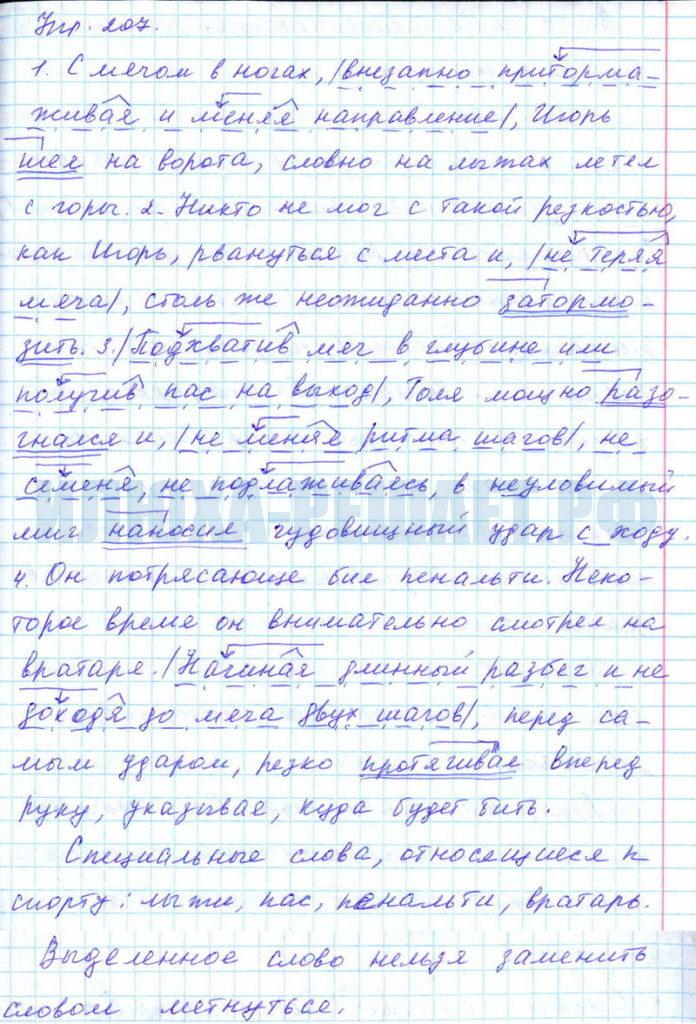 Упр. 207.
1. С мячом в ногах, |внезапно приторма-
живая и меняя направление|, Игорь
шел на ворота, словно на лыжах летел
с горы. 2. Никто не мог с такой резкостью,
как Игорь, рвануться с места и, |не теряя
мяча|, столь же неожиданно затормо-
зить. 3. |Подхватив мяч в глубине или
получив пас на выход|, Толя мощно разо-
гнался и, |не меняя ритма шагов|, не
семеня, не подлаживаясь, в неуловимый
миг наносил чудовищный удар с ходу.
4. Он потрясающе бил пенальти. Неко-
торое время он внимательно смотрел на
вратаря. |Начиная длинный разбег и не
доходя до мяча двух шагов|, перед са-
мым ударом, резко протягивал вперед
руку, указывая, куда будет бить.
Специальные слова, относящиеся к
спорту: лыжи, пас, пенальти, вратарь.
Выделенное слово нельзя заменить
словом метнуться.